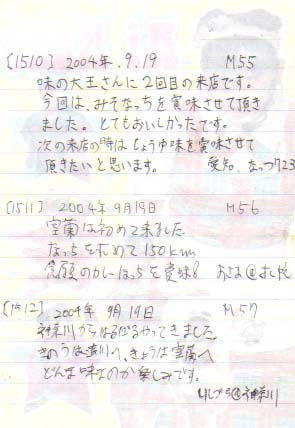 [1510] 2004年.9.19 M55
味の大王さんに2回目の来店です。
今回は、みそなっちを賞味させて頂き
ました。とてもおいしかったです。
次の来店の時はしょうゆ味を賞味させて
頂きたいと思います。 愛知、なっつ723
[1511] 2004年9月19日 M56
室蘭は初めて来ました
なっちを求めて150km
念願のカレーなっちを賞味!
[1512] 2004年 9月19日 M57
神奈川からはるばるやってきました
きのうは滝川へ、きょうは室蘭へ
どんな味なのか楽しみです。
@神奈川